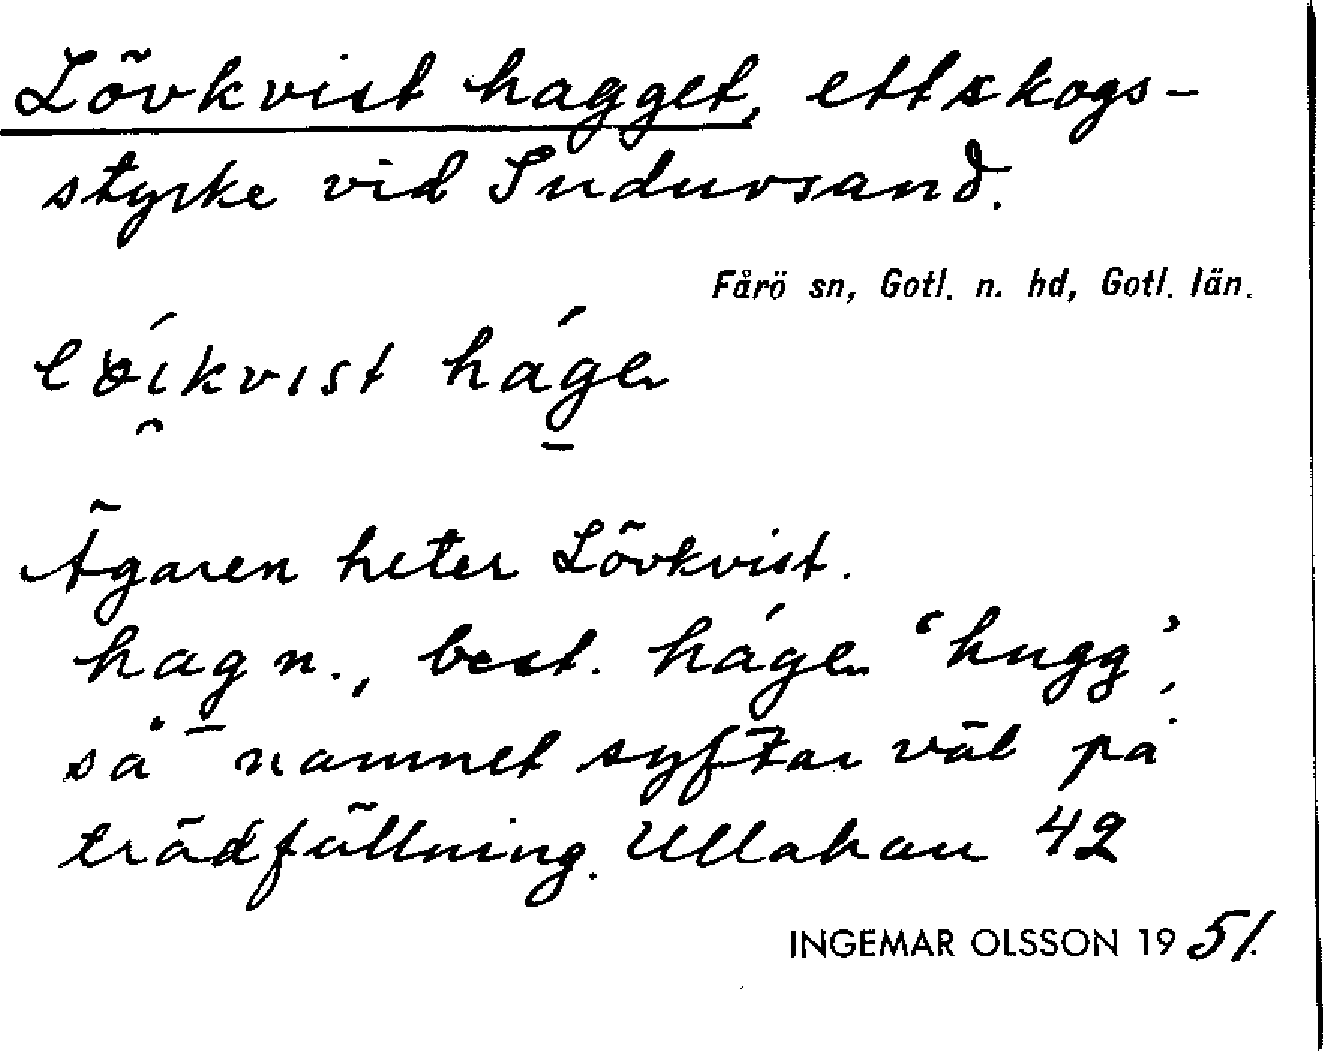 Lövkvist hagget, ett skogs-
styrke vid Sudursand.
Fårö sn, Gotl. n. hd, Gotl. län.
háge
Ägaren heter Lövkvist.
hag n., best. háge 'hugg',
så namnet syftar väl på
trädfällning. Ullahau 42
INGEMAR OLSSON 1951.